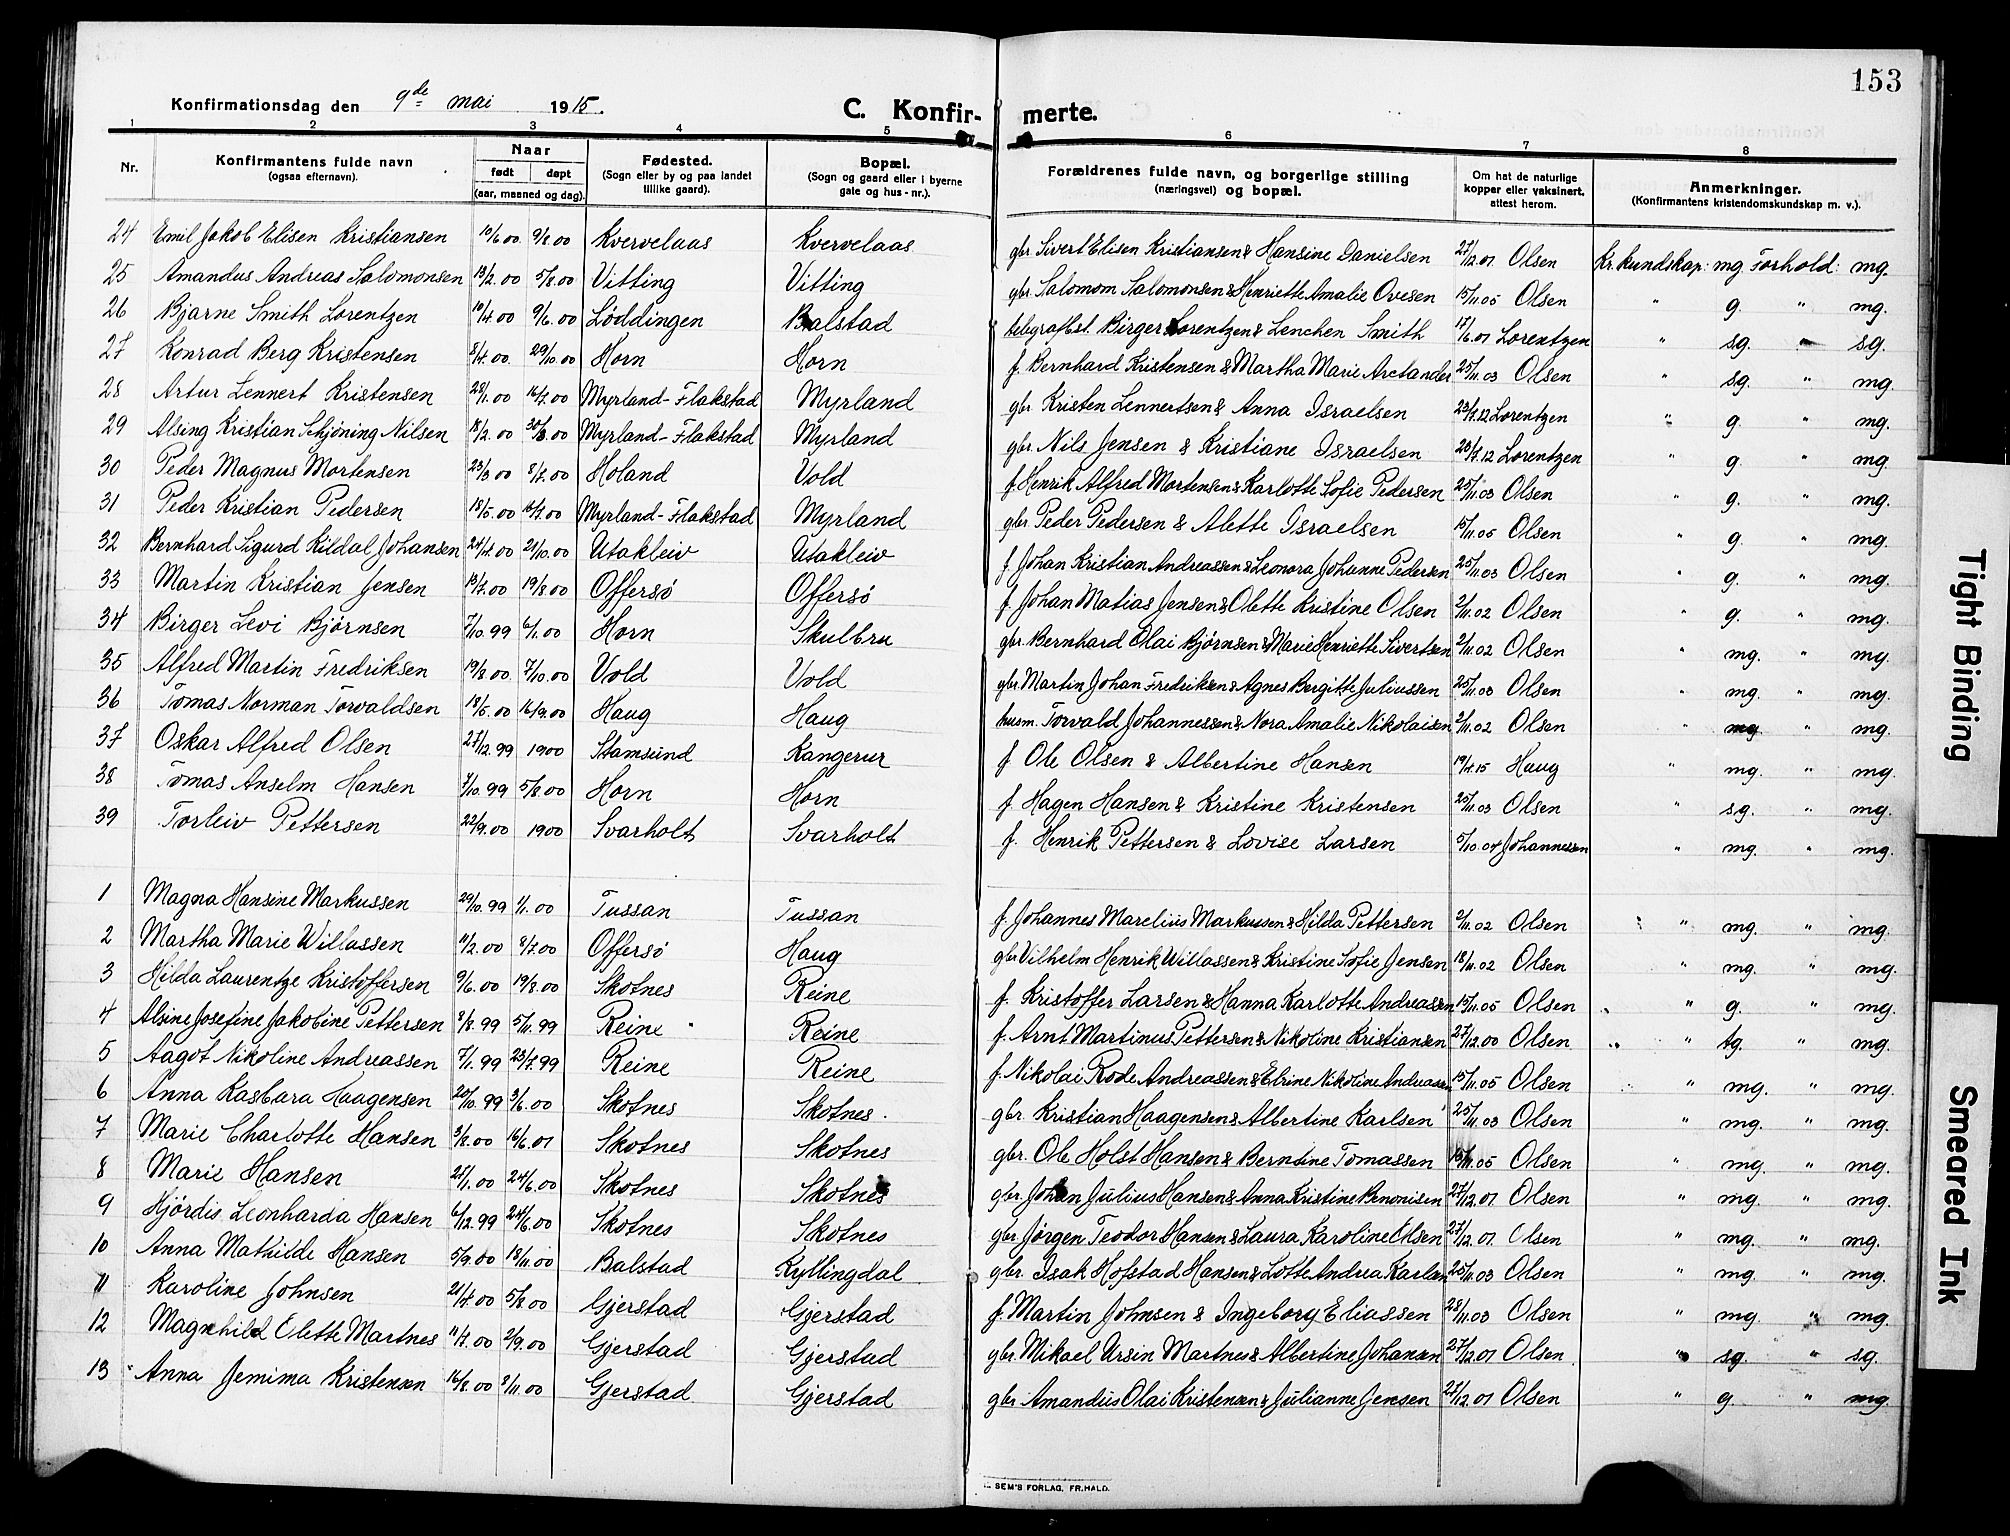 153
Konfirmationsdag den 9de mai 1915. C. Konfir- merte.
1 2 3 4 5 6 7 8
Nr. Konfirmantens fulde navn (ogsaa efternavn). Naar født døpt (aar, maaned og dag). Fødested. (Sogn eller by og paa landet tillike gaard). Bopæl. (Sogn og gaard eller i byerne gate og hus-nr.). Forældrenes fulde navn, og borgerlige stilling (næringsvei) og bopæl. Om hat de naturlige kopper eller vaksinert, attest herom. Anmerkninger. (Konfirmantens kristendomskundskap m. v.).
24 Emil Jakob Elisen Kristiansen 10/6.00 9/8.00 Kvervelaas Kvervelaas gbr. Sivert Elisen Kristiansen & Hansine Danielsen 27/12.01 Olsen Kr.kundskap: mg. Forhold: mg.
25 Amandus Andreas Salomonsen 13/2.00 5/8.00 Vitting Vitting gbr. Salomom Salomonsen & Henriette Amalie Ovesen 15/11.05 Olsen " g. " mg.
26 Bjarne Smith Lorentzen 10/4.00 9/6.00 Løddingen Balstad telegrafbst. Birger Lorentzen & Lenchen Smith 17/6.01 Lorentzen " sg. " sg.
27 Konrad Berg Kristensen 8/4.00 29/10.00 Horn Horn f. Bernhard Kristensen & Martha Marie Arctander 25/11.03 Olsen " sg. " mg.
28 Artur Lennert Kristensen 28/1.00 16/7.00 Myrland-Flakstad Myrland gbr. Kristen Lennertsen & Anna Israelsen 23/7.12 Lorentzen " g. " mg.
29 Alsing Kristian Schjøning Nilsen 18/2.00 Myrland-Flakstad Myrland gbr. Nils Jensen & Kristiane Israelsen 23/7.12 Lorentzen " g. " mg.
30 Peder Magnus Mortensen 23/3.00 8/7.00 Holand Vold f. Henrik Alfred Mortensen & Karlotte Sofie Pedersen 25/11.03 Olsen " g. " mg.
31 Peder Kristian Pedersen 18/5.00 16/7.00 Myrland-Flakstad Myrland gbr. Peder Pedersen & Alette Israelsen 15/11.05 Olsen " g. " mg.
32 Bernhard Sigurd Kildal Johansen 24/4.00 21/10.00 Utakleiv Utakleiv f. Johan Kristian Andreassen & Leonora Johanne Pedersen 25/11.03 Olsen " g. " mg.
33 Martin Kristian Jensen 13/7.00 19/8.00 Offersø Offersø f. Johan Matias Jensen & Olette Kristine Olsen 2/11.02 Olsen " g. " mg.
34 Birger Levi Bjørnsen 7/10.99 6/1.00 Horn Skulbru gbr. Bernhard Olai Bjørnsen & Marie Henriette Sivertsen 2/11.02 Olsen " mg. " mg.
35 Alfred Martin Fredriksen 19/8.00 7/10.00 Vold Vold gbr. Martin Johan Fredriksen & Agnes Bergitte Juliussen 25/11.03 Olsen " mg. " mg.
36 Tomas Norman Torvaldsen 18/5.00 16/9.00 Haug Haug husm. Torvald Johannessen & Nora Amalie Nikolaisen 2/11.02 Olsen " mg. " mg.
37 Oskar Alfred Olsen 27/12.99 1900 Stamsund Kangerur f. Ole Olsen & Albertine Hansen 19/4.15 Haug " mg. " mg.
38 Tomas Anselm Hansen 7/10.99 5/8.00 Horn Horn f. Hagen Hansen & Kristine Kristensen 25/11.03 Olsen " sg. " mg.
39 Torleiv Pettersen 22/9.00 1900 Svarholt Svarholt f. Henrik Pettersen & Lovise Larsen 5/10.04 Johannessen " mg. " mg.
1 Magna Hansine Markussen 29/10.99 1/1.00 Tussan Tussan f. Johannes Marelius Markussen & Hilda Pettersen 2/11.02 Olsen " mg. " mg.
2 Martha Marie Willassen 11/2.00 8/7.00 Offersø Haug gbr Vilhelm Henrik Willassen & Kristine Sofie Jensen 18/11.02 Olsen " mg. " mg.
3 Hilda Laurentze Kristoffersen 9/6.00 19/8.00 Skotnes Reine f. Kristoffer Larsen & Hanna Karlotte Andreassen 15/11.05 Olsen " g. " mg.
4 Alsine Josefine Jakobine Pettersen 8/8.99 5/11.99 Reine Reine f. Arnt Martinus Pettersen & Nikoline Kristiansen 27/12.00 Olsen " tg. " mg.
5 Aagot Nikoline Andreassen 7/1.99 23/7.99 Reine Reine f. Nikolai Rode Andreassen & Elrine Nikoline Andreassen 15/11.05 Olsen " mg. " mg.
6 Anna Kasbara Haagensen 20/10.99 3/6.00 Skotnes Skotnes. gbr. Kristian Haagensen & Albertine Karlsen 25/11.03 Olsen " mg. " mg.
7 Marie Charlotte Hansen 3/8.00 16/6.01 Skotnes Skotnes gbr. Ole Holst Hansen & Berntine Tomassen 15/11.05 Olsen " mg. " mg.
8 Marie Hansen 21/1.00 24/6.00 Skotnes Skotnes gbr. Johan Julius Hansen & Anna Kristine Benonisen 27/12.01 Olsen " mg. " mg.
9 Hjørdis Leonharda Hansen 6/12.99 24/6.00 Skotnes Skotnes gbr. Jørgen Teodor Hansen & Laura Karoline Olsen 27/12.01. Olsen " mg. " mg.
10 Anna Mathilde Hansen 5/9.00 18/11.00 Balstad Kyllingdal gbr. Isak Hofstad Hansen & Lotte Andrea Karlsen 25/11.03 Olsen " mg. " mg.
11 Karoline Johnsen 21/4.00 5/8.00 Gjerstad Gjerstad f. Martin Johnsen & Ingeborg Eliassen 28/11.03 Olsen " mg. " mg.
12 Magnhild Olette Martnes 11/7.00 2/9.00 Gjerstad Gjerstad gbr. Mikael Ursin Martnes & Albertine Johansen 27/12.01 Olsen " sg. " sg.
13 Anna Jemima Kristensen 16/8.00 8/11.00 Gjerstad Gjerstad gbr Amandus Olai Kristensen & Julianne Jensen 27/12.01 Olsen " g. " mg.
SEM'S FORLAG, FR.HALD.
Tight Binding
Smeared Ink